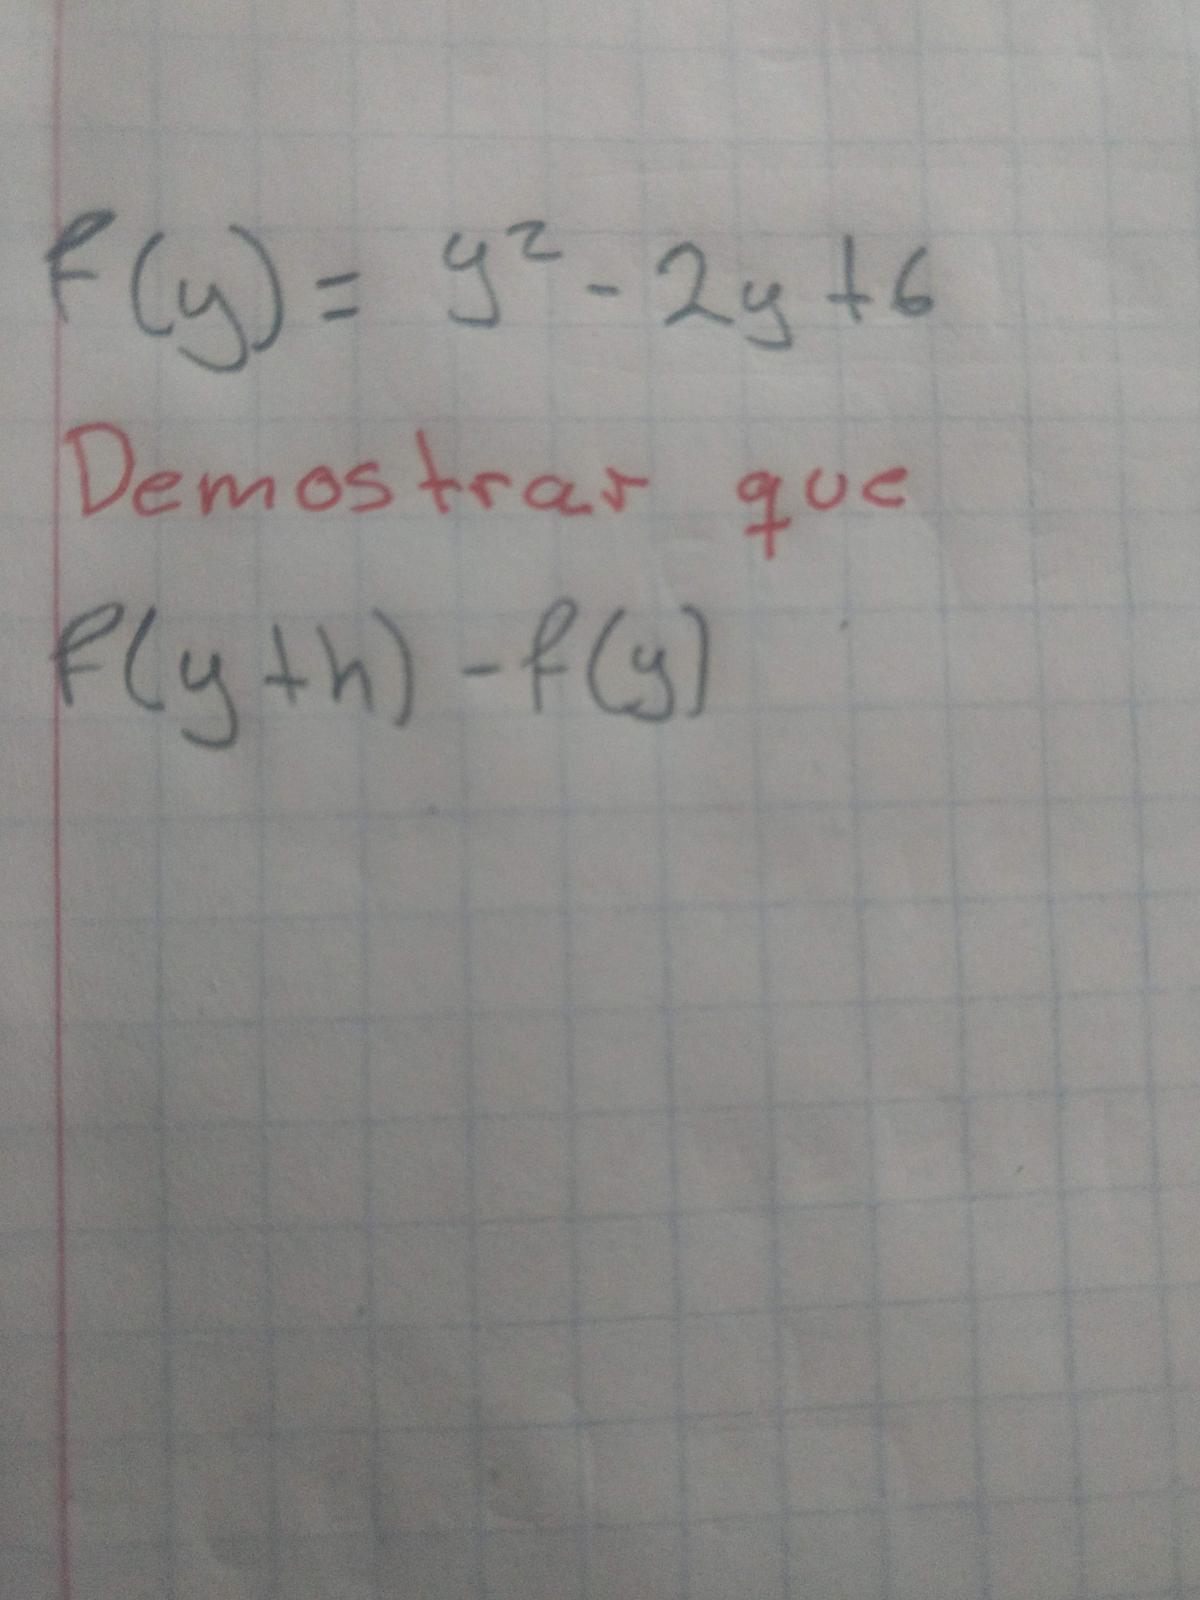 f(y) = y² - 2y + 6
Demostrar que
f(y+h) - f(y)